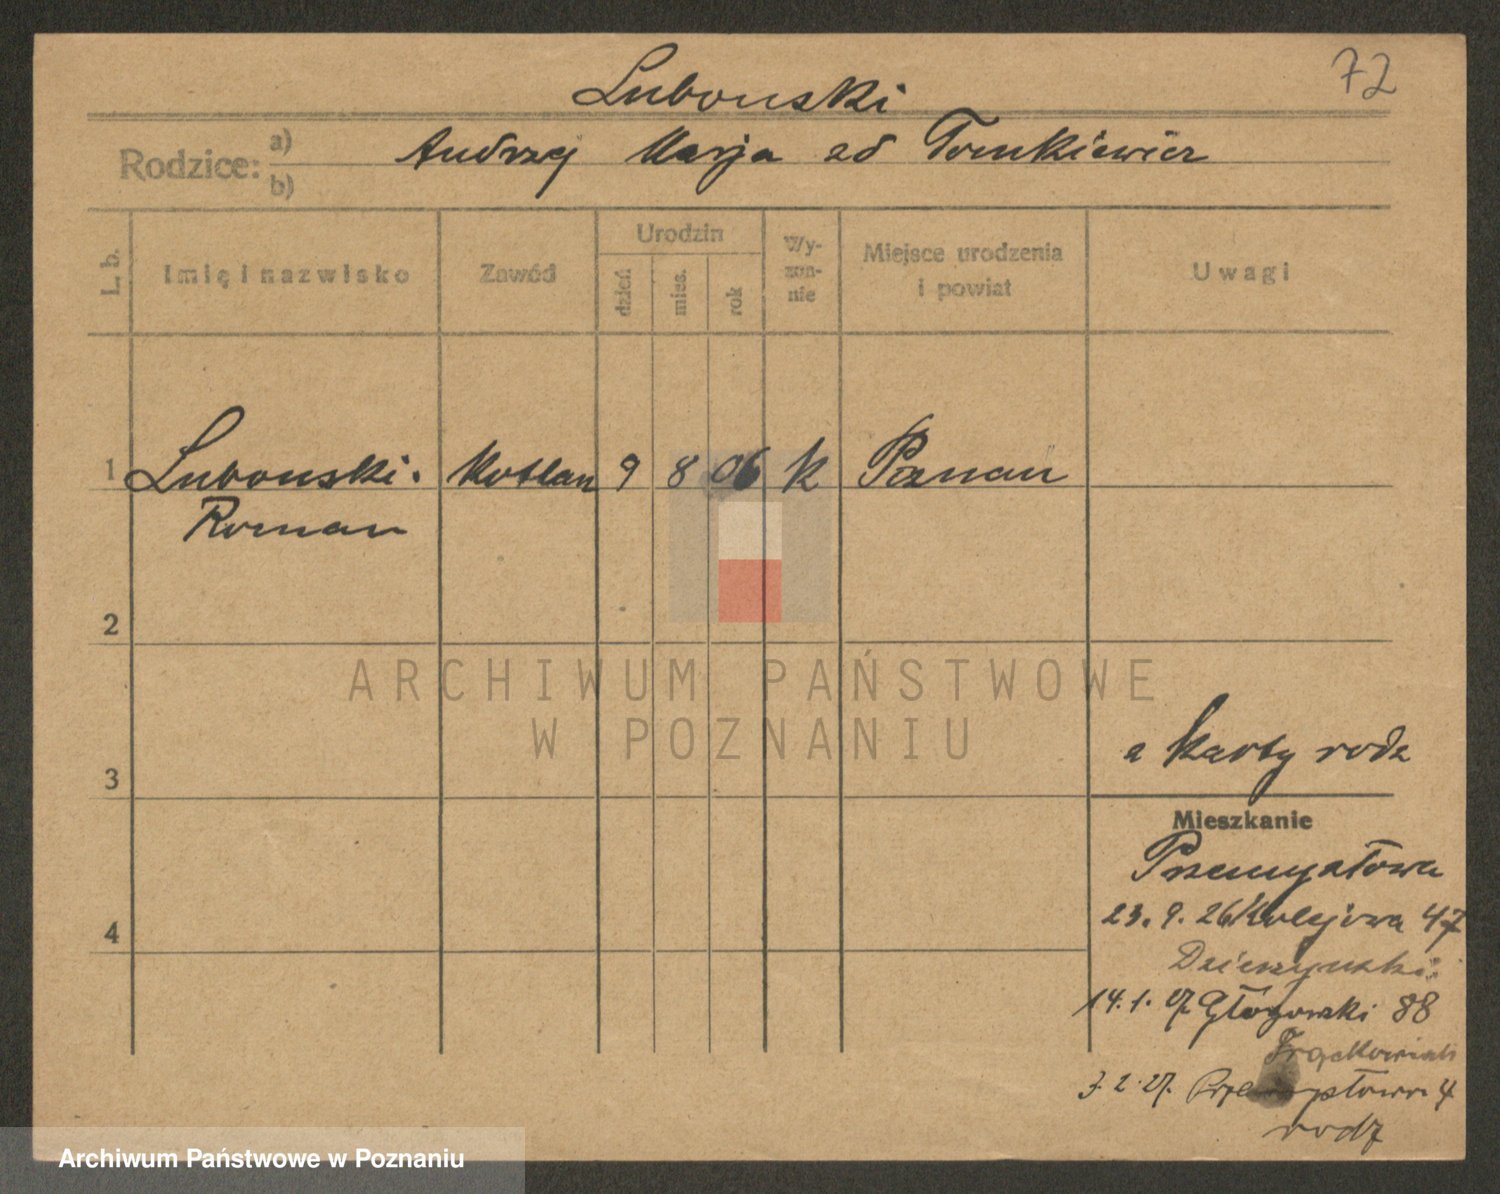 72
Lubonski
Rodzice: a) b)
Andrzej Marja ad Tomkiewicz
L. b.
Imię i nazwisko
Zawód
Urodzin
dzień
mies.
rok
Wy-
zna-
nie
Miejsce urodzenia
i powiat
Uwagi
1 Lubonski. 9 8 06 k
Roman
2
ARCHIWUM PAŃSTWOWE
W POZNANIU
karty rodz
3
Mieszkanie
Przemysłowa
23. 9. 26 Kolejowa 47
4
14. 1. 27 88
3. 2. 27. Przemysłowa 4
rodz
Archiwum Państwowe w Poznaniu